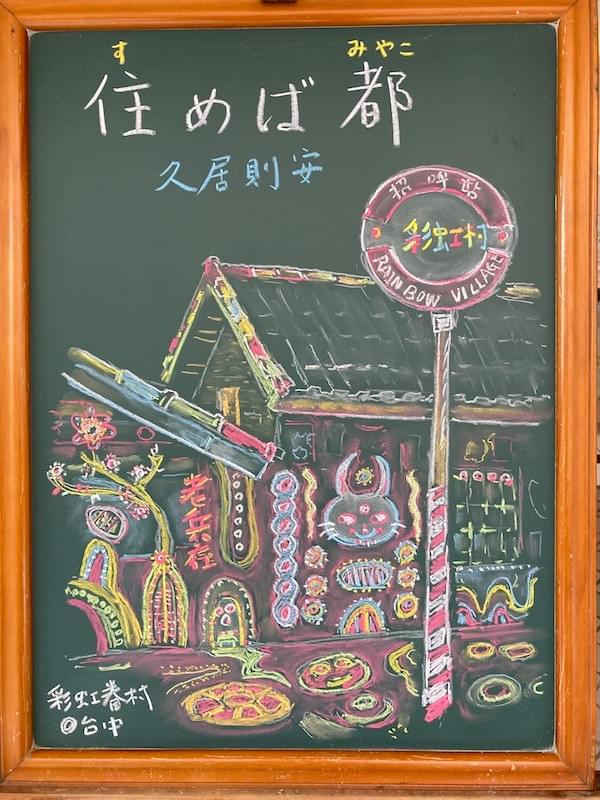 す みやこ
住めば都
久居則安
招呼站
彩虹村
RAINBOW VILLAGE
老兵在
彩虹眷村
@台中